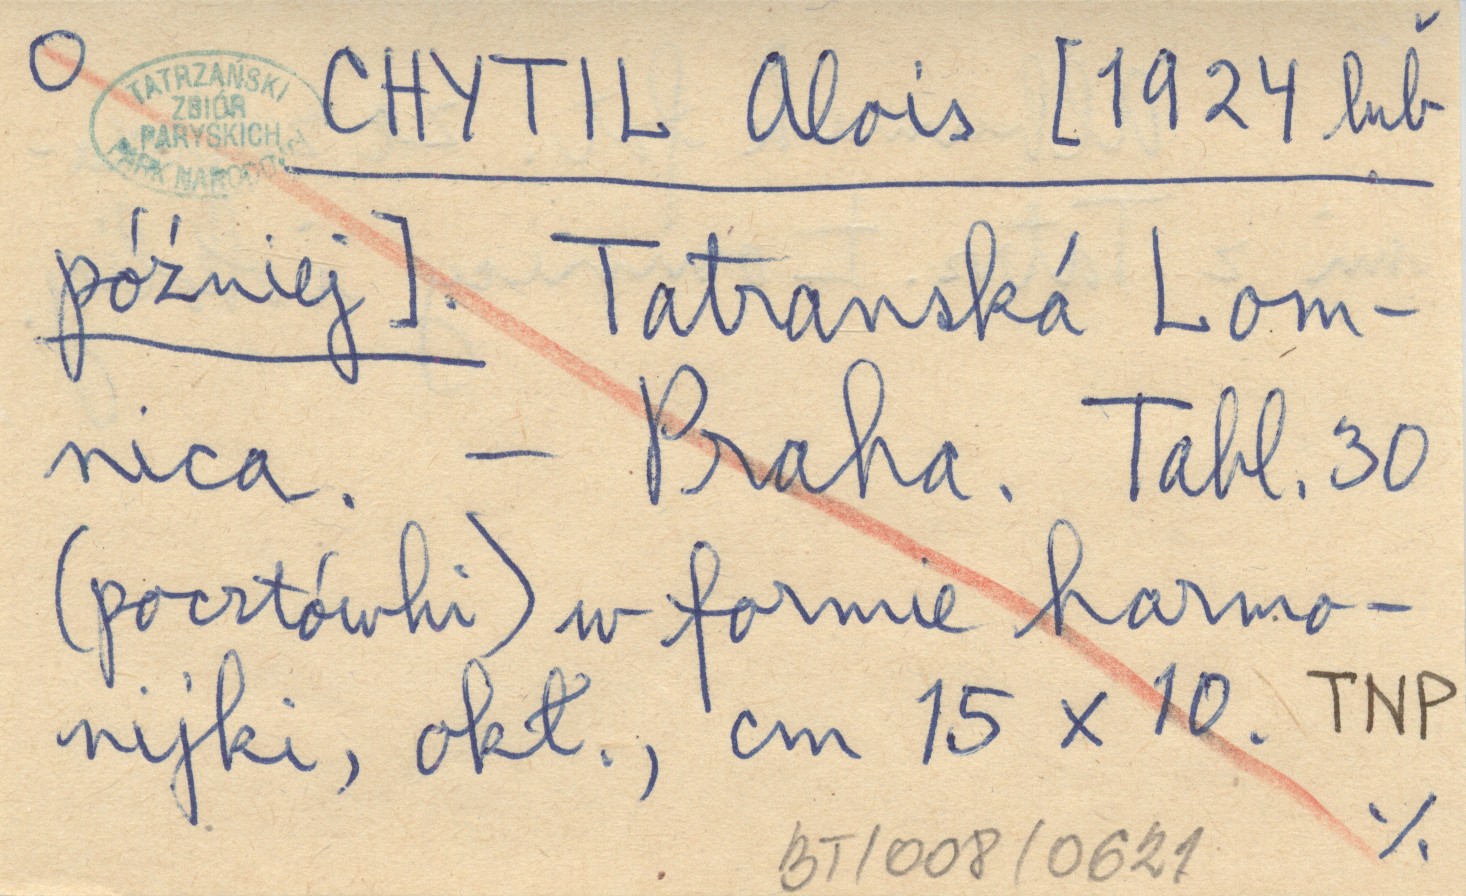 O
TATRZAŃSKI
ZBIÓR
PARYSKICH
PARK NARODOWY
CHYTIL Alois [1924 lub
później]. Tatranská Lom-
nica. — Praha. Tabl. 30
(pocztówki) w formie harmo-
nijki, okł., cm 15 x 10. TNP
·/.
BT/008/0621